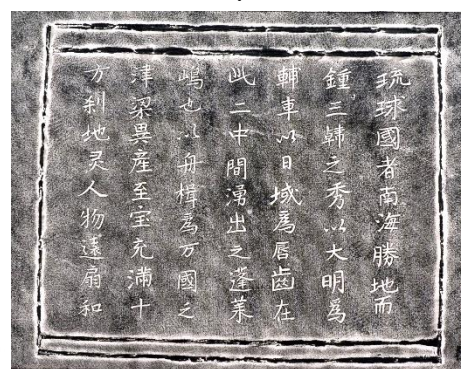 琉球國者南海勝地而
鍾三韓之秀以大明為
輔車以日域為唇齒在
此二中間湧出之蓬萊
嶋也以舟楫為万國之
津梁異産至宝充滿十
方刹地灵人物遠扇和